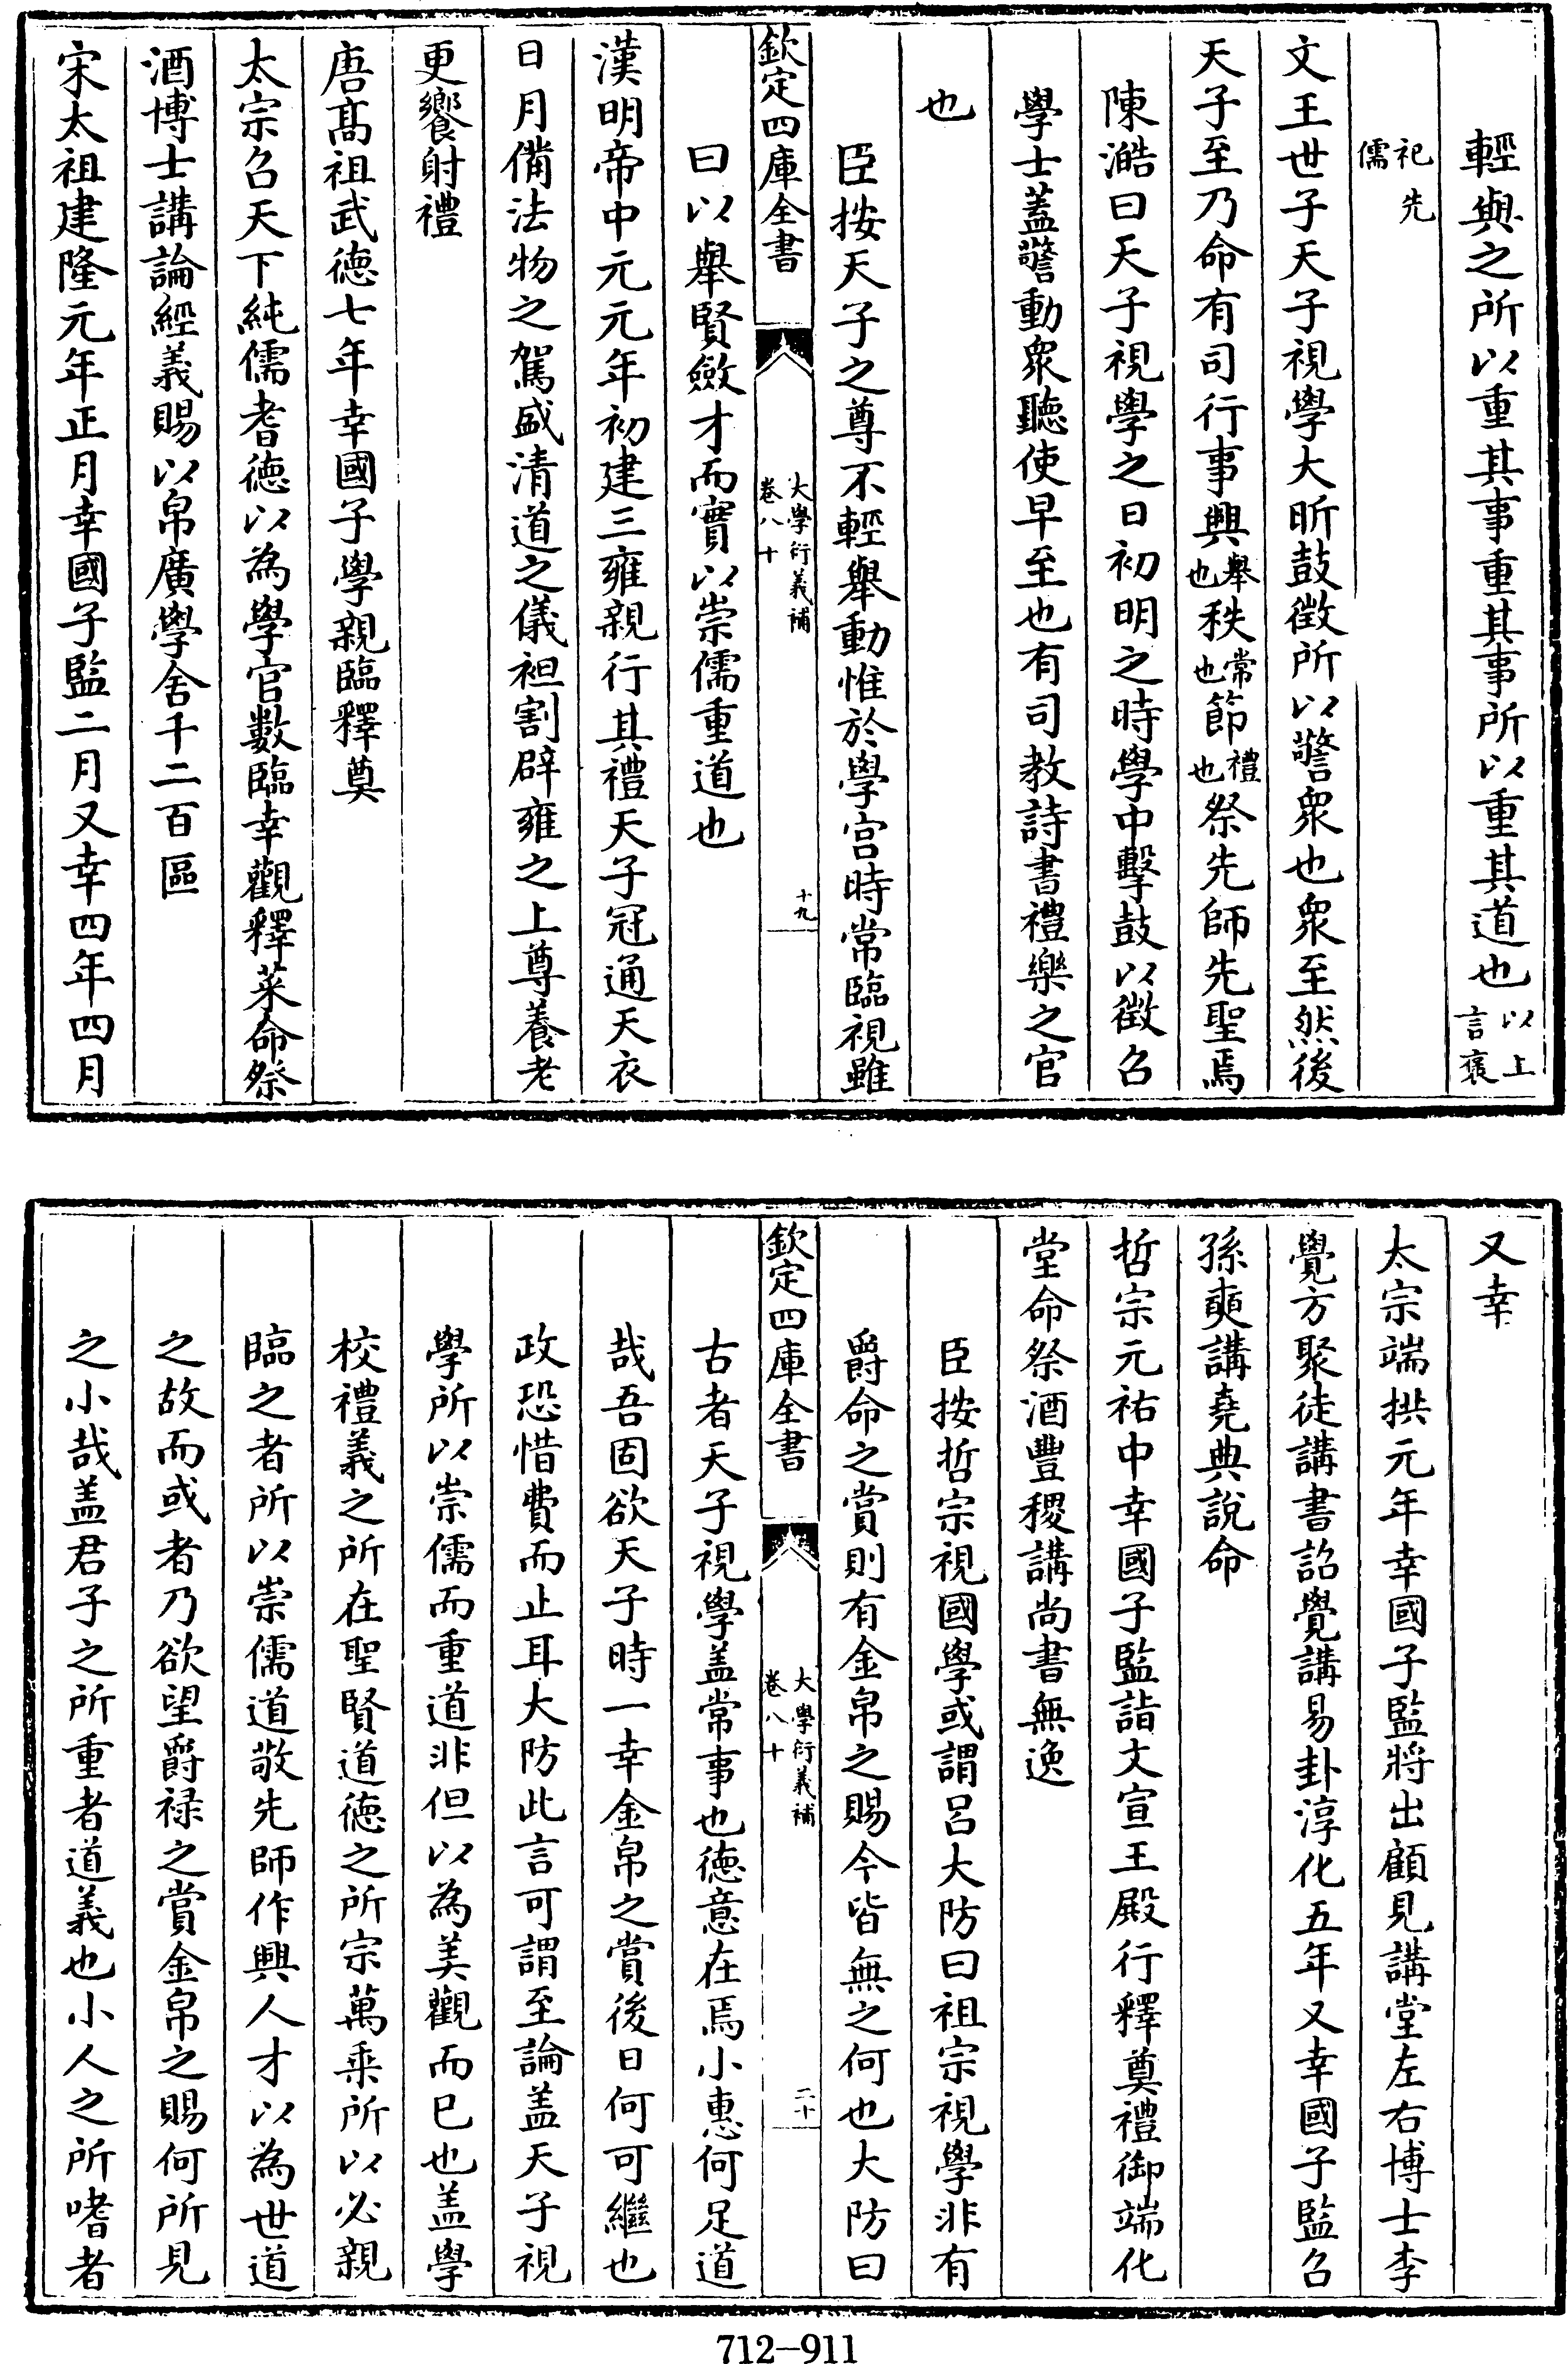 輕與之所以重其事重其事所以重其道也以上言襃
祀先儒
文王世子天子視學大昕鼓徵所以警衆也衆至然後
天子至乃命有司行事興舉也秩常也節禮也祭先師先聖焉
陳澔曰天子視學之日初明之時學中擊鼓以徵召
學士蓋警動衆聽使早至也有司教詩書禮樂之官
也
臣按天子之尊不輕舉動惟於學宫時常臨視雖
欽定四庫全書
大學衍義補
卷八十
十九
曰以舉賢斂才而實以崇儒重道也
漢明帝中元元年初建三雍親行其禮天子冠通天衣
日月備法物之駕盛清道之儀袒割辟雍之上尊養老
更饗射禮
唐髙祖武徳七年幸國子學親臨釋奠
太宗召天下純儒耆徳以為學官數臨幸觀釋菜命祭
酒博士講論經義賜以帛廣學舍千二百區
宋太祖建隆元年正月幸國子監二月又幸四年四月
又幸
太宗端拱元年幸國子監將出顧見講堂左右博士李
覺方聚徒講書詔覺講易卦淳化五年又幸國子監召
孫奭講堯典說命
哲宗元祐中幸國子監詣文宣王殿行釋奠禮御端化
堂命祭酒豐稷講尚書無逸
臣按哲宗視國學或謂呂大防曰祖宗視學非有
爵命之賞則有金帛之賜今皆無之何也大防曰
欽定四庫全書
大學衍義補
卷八十
二十
古者天子視學盖常事也徳意在焉小惠何足道
哉吾固欲天子時一幸金帛之賞後日何可繼也
政恐惜費而止耳大防此言可謂至論盖天子視
學所以崇儒而重道非但以為美觀而已也盖學
校禮義之所在聖賢道徳之所宗萬乗所以必親
臨之者所以崇儒道敬先師作興人才以為世道
之故而或者乃欲望爵禄之賞金帛之賜何所見
之小哉盖君子之所重者道義也小人之所嗜者
712-911